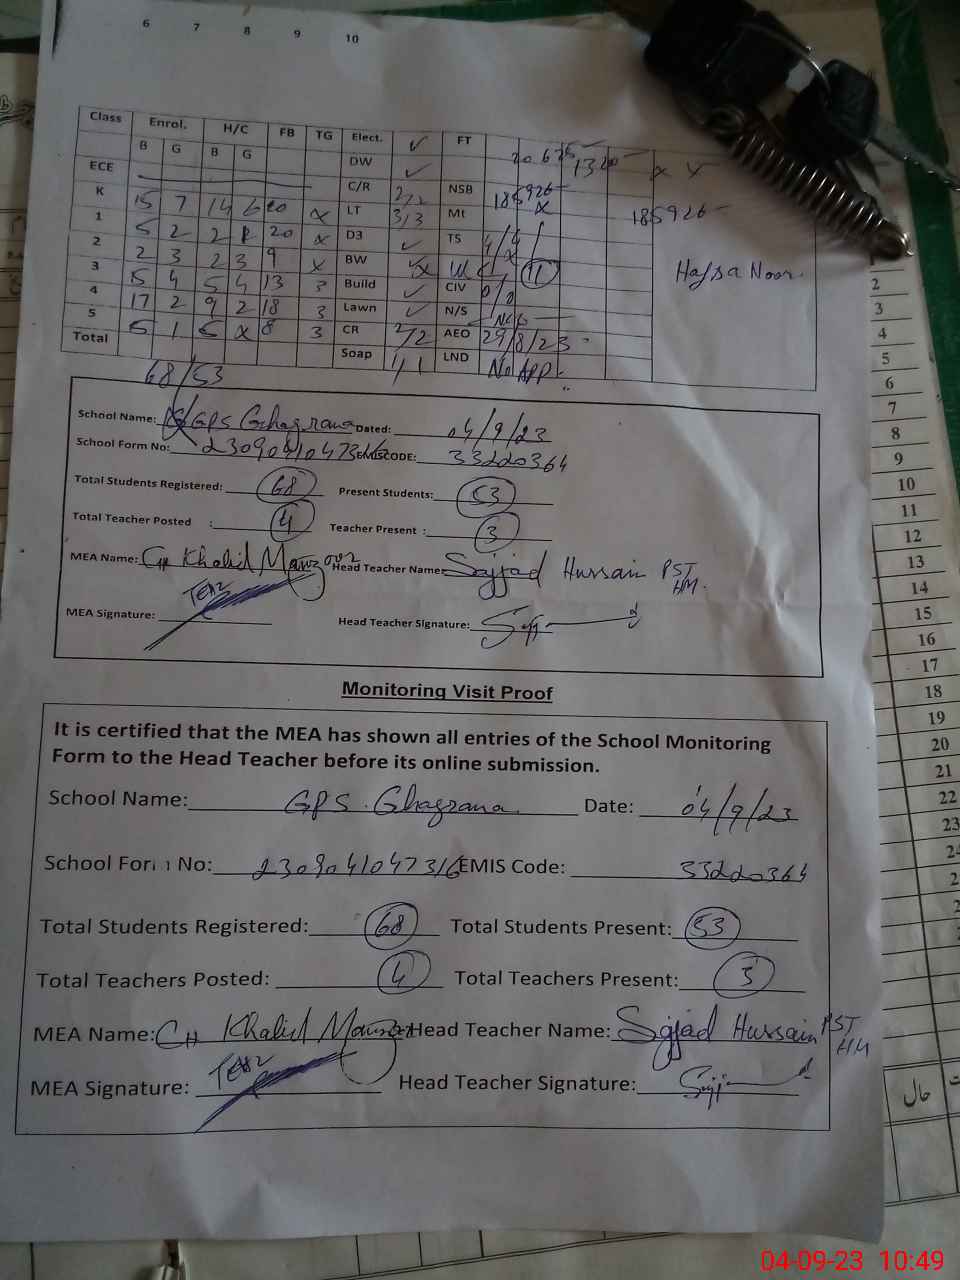 6 7 8 9 10
Class Enrol. H/C FB TG Elect. ✓ FT
B G B G DW ✓ 1320
ECE C/R 2/2 NSB 185926
K 15 7 14 6 20 x LT 3/3 Mt x 185926
1 5 2 2 20 x D3 ✓ TS 4/4
2 2 3 2 3 9 x BW x 11 Hafsa Noor
3 15 4 5 4 13 3 Build ✓ CIV 0/0
4 17 2 9 2 18 3 Lawn ✓ N/S
5 5 1 5 x 8 3 CR 2/2 AEO 29/8/23
Total Soap 1/1 LND No App
68/53
School Name: GPS Ghagrana Dated: 04/9/23
School Form No: 2309041047316 EMISCODE: 33220364
Total Students Registered: 68 Present Students: 53
Total Teacher Posted : 4 Teacher Present : 3
MEA Name: CH Khalid Manzoor Head Teacher Name: Sajjad Hussain PST HM.
MEA Signature: Head Teacher Signature:
Monitoring Visit Proof
It is certified that the MEA has shown all entries of the School Monitoring
Form to the Head Teacher before its online submission.
School Name: GPS Ghagrana Date: 04/9/23
School Form No: 2309041047316 EMIS Code: 33220364
Total Students Registered: 68 Total Students Present: 53
Total Teachers Posted: 4 Total Teachers Present: 3
MEA Name: CH Khalid Manzoor Head Teacher Name: Sajjad Hussain PST HM
MEA Signature: Head Teacher Signature:
2
3
4
5
6
7
8
9
10
11
12
13
14
15
16
17
18
19
20
21
22
23
24
حال
04-09-23 10:49